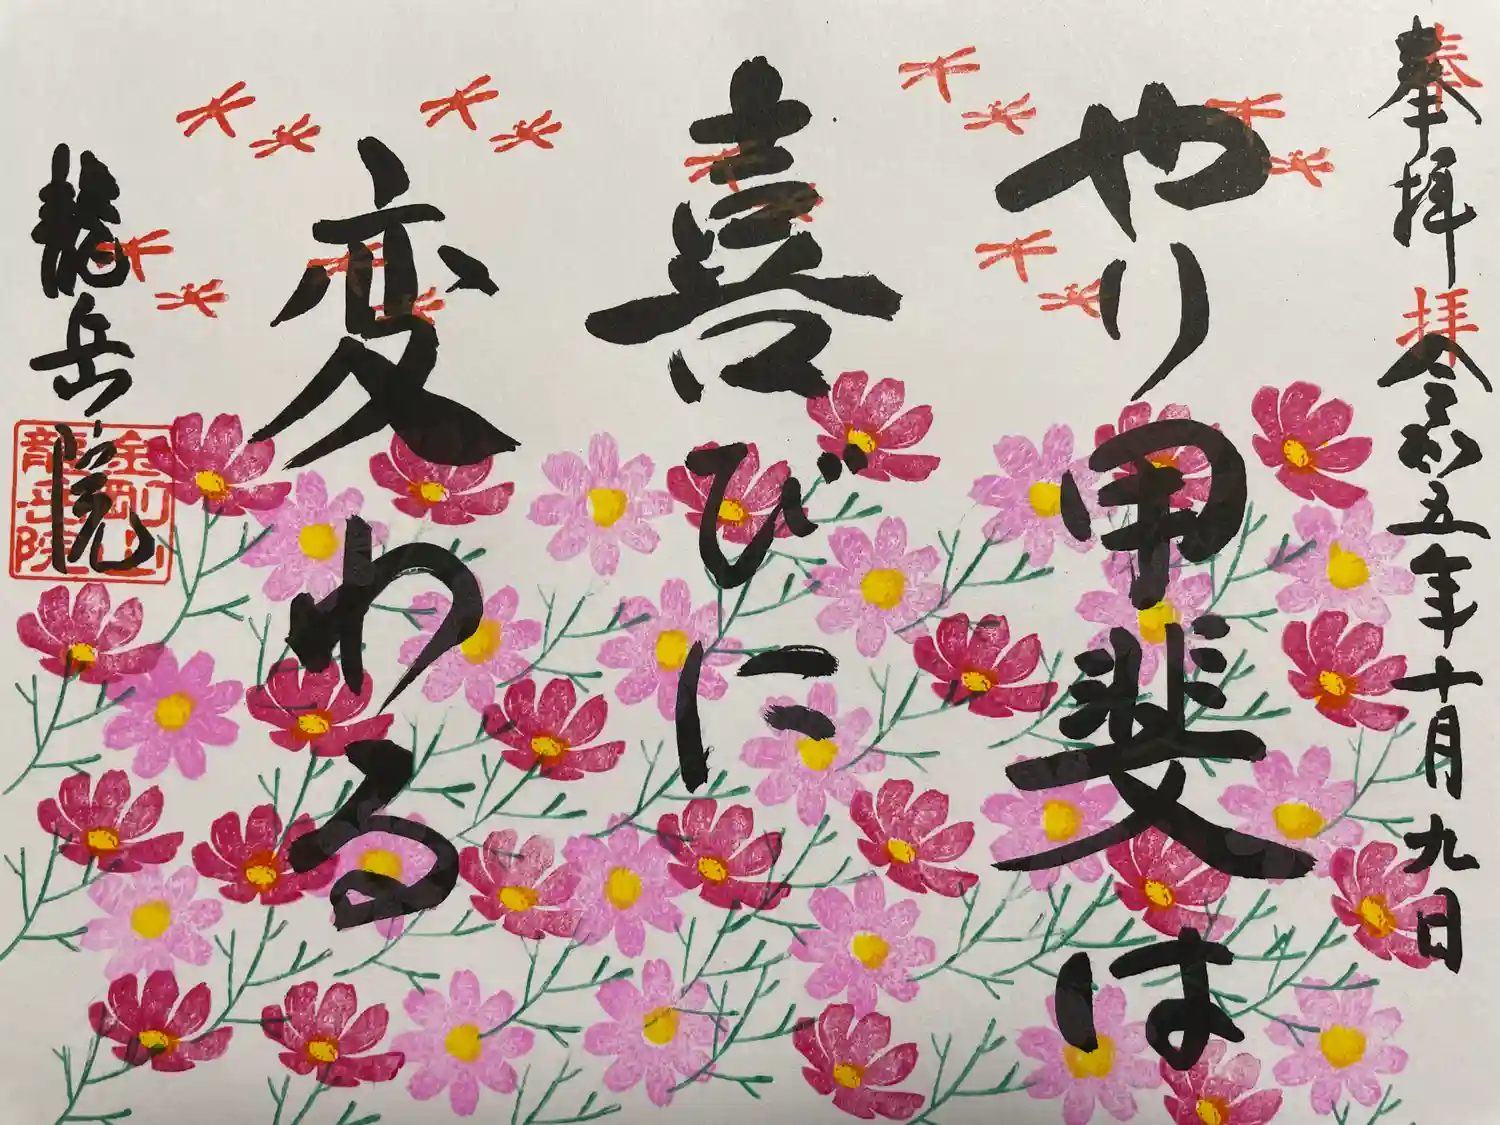 奉拝
奉拝
令和五年十月九日
やり甲斐は
喜びに
変わる
龍岳院
金剛山
龍岳院